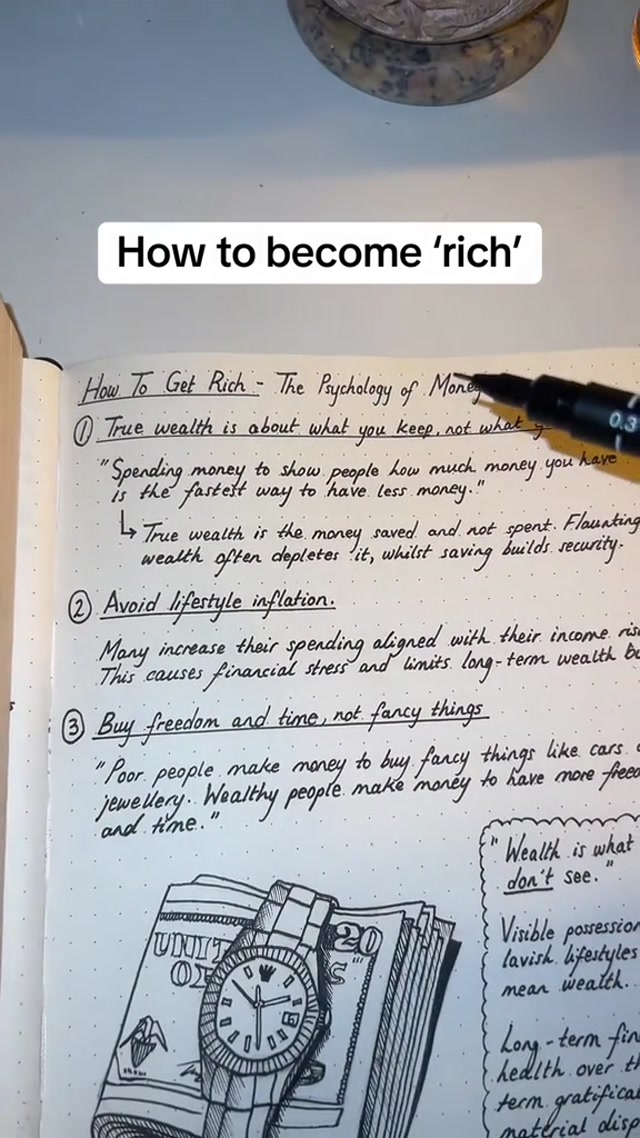 How to become ‘rich’
How To Get Rich - The Psychology of Money
① True wealth is about what you keep, not what
"Spending money to show people how much money you have
is the fastest way to have less money."
↳ True wealth is the money saved and not spent. Flaunting
wealth often depletes it, whilst saving builds security.
② Avoid lifestyle inflation.
Many increase their spending aligned with their income
This causes financial stress and limits long-term wealth
③ Buy freedom and time, not fancy things
"Poor people make money to buy fancy things like cars
jewellery. Wealthy people make money to have more
and time."
"Wealth is what
don't see."
Visible
lavish lifestyles
mean wealth.
Long-term
health over
term
material
UNIT
OF
20
0.3